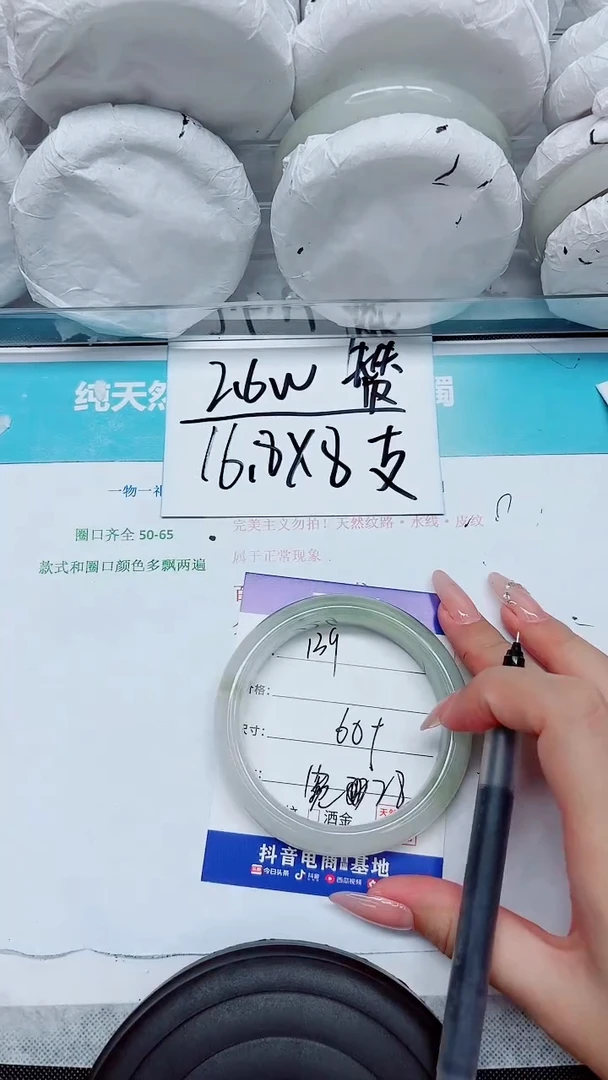 2.6W 赞
16.8X8支
纯天然
镯
一物一
圈口齐全 50-65
款式和圈口颜色多飘两遍
完美主义勿拍！天然纹路·水线·皮纹
属于正常现象
139
格:
寸:
60+
28
洒金
抖音电商 基地
今日头条 抖音 西瓜视频